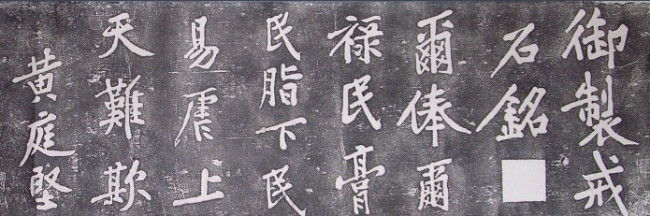 御製戒
石銘
爾俸爾
祿民膏
民脂下民
易虐上
天難欺
黃庭堅